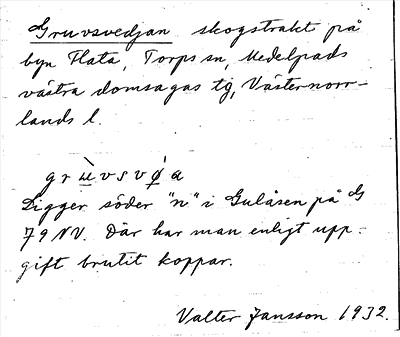 Gruvsvedjan skogstrakt på
byn Flata, Torps sn, Medelpads
västra domsagas tg, Västernorr-
lands l.
grùvsvǿa
Ligger söder "n" i Gulåsen på G
79 NV. Där har man enligt upp-
gift brutit koppar.
Valter Jansson 1932.